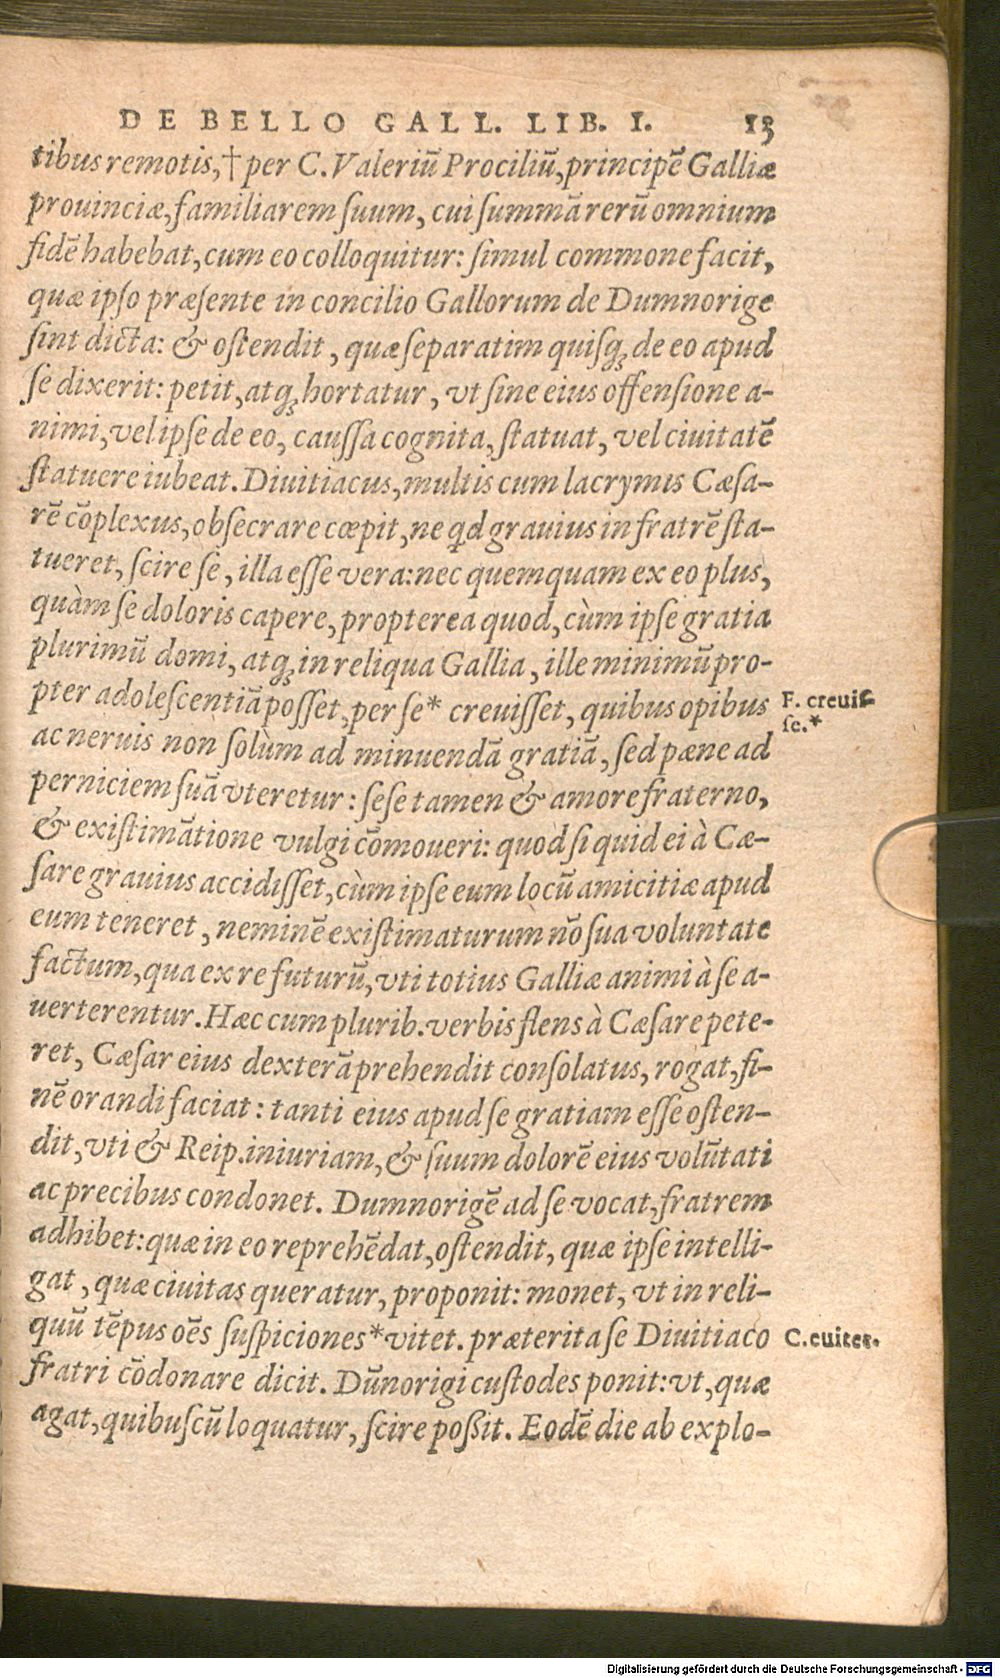 DE BELLO GALL. LIB. I. 13
tibus remotis, † per C. Valeriū Prociliū, principē Galliæ
prouinciæ, familiarem ſuum, cui ſummā rerū omnium
fidē habebat, cum eo colloquitur: ſimul commonefacit,
quæ ipſo præſente in concilio Gallorum de Dumnorige
ſint dicta: & oſtendit, quæ ſeparatim quiſq; de eo apud
ſe dixerit: petit, atq; hortatur, vt ſine eius offenſione a-
nimi, vel ipſe de eo, cauſſa cognita, ſtatuat, vel ciuitatē
ſtatuere iubeat. Diuitiacus, multis cum lacrymis Cæſa-
rē cōplexus, obſecrare cœpit, ne qd grauius in fratrē ſta-
tueret, ſcire ſe, illa eſſe vera: nec quemquam ex eo plus,
quàm ſe doloris capere, propterea quod, cùm ipſe gratia
plurimū domi, atq; in reliqua Gallia, ille minimū pro-
pter adoleſcentiā poſſet, per ſe* creuiſſet, quibus opibus
F. creuiſ-
ſe.*
ac neruis non ſolùm ad minuendā gratiā, ſed pæne ad
perniciem ſuā vteretur: ſeſe tamen & amore fraterno,
& exiſtimātione vulgi cōmoueri: quod ſi quid ei à Cæ-
ſare grauius accidiſſet, cùm ipſe eum locū amicitiæ apud
eum teneret, neminē exiſtimaturum nō ſua voluntate
factum, qua ex re futurū, vti totius Galliæ animi à ſe a-
uerterentur. Hæc cum plurib. verbis flens à Cæſare pete-
ret, Cæſar eius dexterā prehendit conſolatus, rogat, fi-
nē orandi faciat: tanti eius apud ſe gratiam eſſe oſten-
dit, vti & Reip. iniuriam, & ſuum dolorē eius volūtati
ac precibus condonet. Dumnorigē ad ſe vocat, fratrem
adhibet: quæ in eo reprehēdat, oſtendit, quæ ipſe intelli-
gat, quæ ciuitas queratur, proponit: monet, vt in reli-
quū tēpus oēs ſuſpiciones* vitet. præterita ſe Diuitiaco
C. euitet.
fratri cōdonare dicit. Dūnorigi cuſtodes ponit: vt, quæ
agat, quibuſcū loquatur, ſcire poßit. Eodē die ab explo-
Digitalisierung gefördert durch die Deutsche Forschungsgemeinschaft - DFG